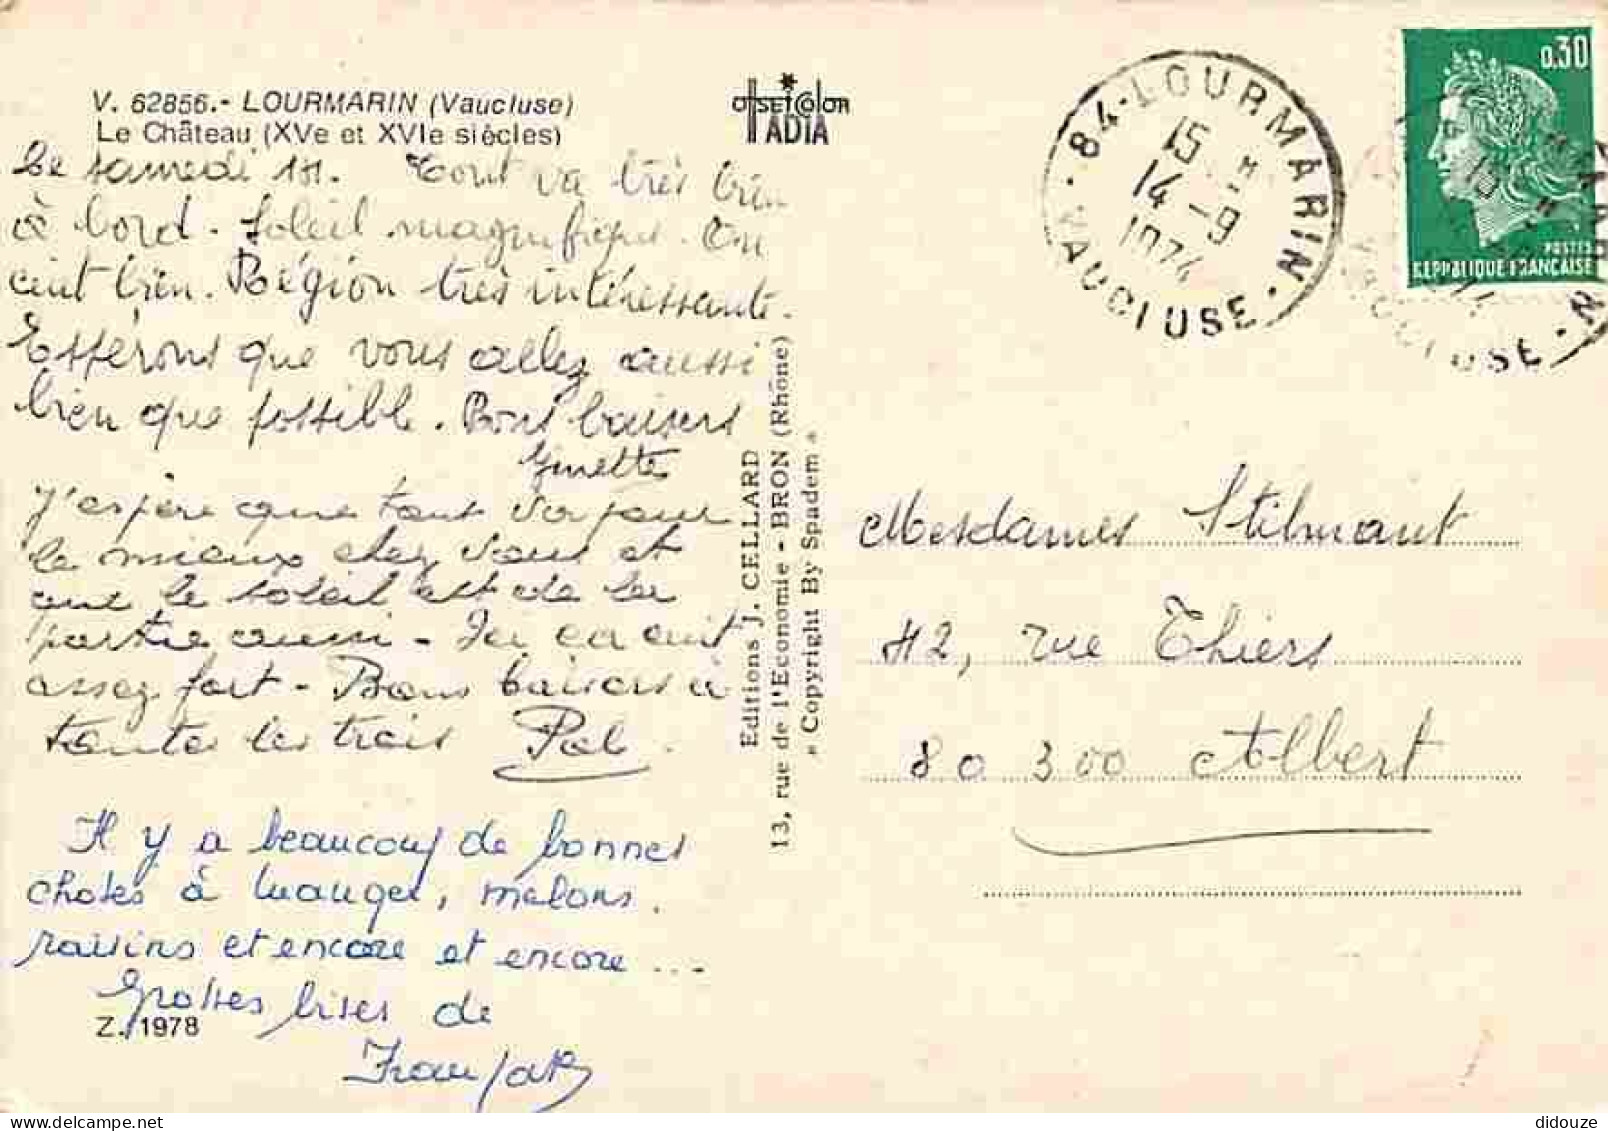 V. 62856.- LOURMARIN (Vaucluse)
Le Château (XVe et XVIe siècles)
OffsetColOR
IADIA
Le samedi
Tout va très bien
à bord. Soleil magnifique. On
cuit bien. Région très intéressante.
Espérons que vous allez aussi
bien que possible. Bons baisers
Ginette
J'espère que tout va pour
le mieux chez vous et
que le soleil est de la
partie aussi - Ici ça cuit
assez fort - Bons baisers à
toutes les trois Pol.
Il y a beaucoup de bonnes
choses à manger, melons.
raisins et encore et encore ...
Grosses bises de
Z. 1978
Editions J. CELLARD
13, rue de l'Economie - BRON (Rhône)
« Copyright By Spadem »
84 - LOURMARIN
15 H
14 - 9
1974
VAUCLUSE
0.30
POSTES
REPUBLIQUE FRANCAISE
Mesdames Stilmant
42, rue Thiers
80 300 Albert
didouze